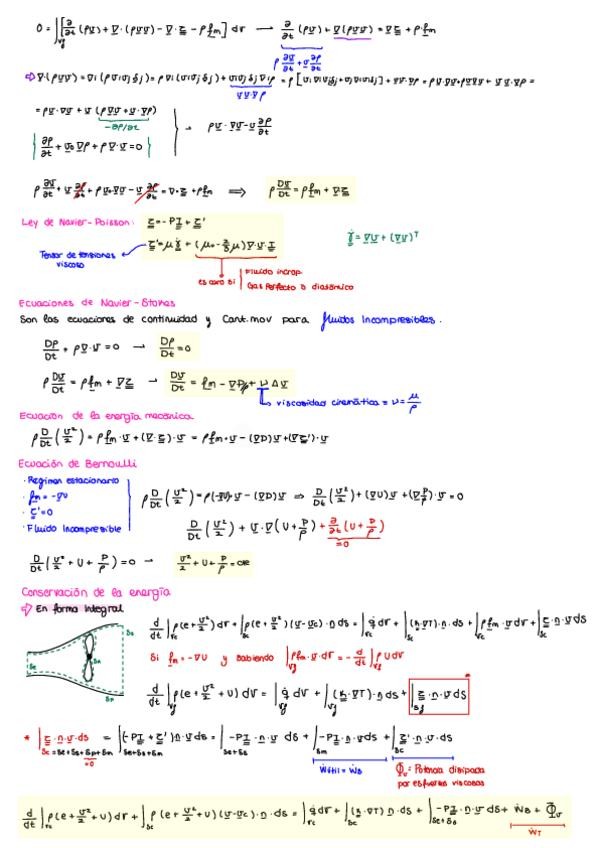 0 = ∫_Vf [∂/∂t (ρv) + ∇·(ρvv) − ∇·τ − ρfm] dV → ∂/∂t (ρv) + ∇(ρvv) = ∇τ + ρ·fm
ρ ∂v/∂t + v ∂ρ/∂t
⇒ ∇·(ρvv) = ∇i (ρvivjδj) = ρ∇i(vivjδj) + vivjδj∇iρ = ρ[
v v·∇ρ
= ρv·∇v + v (ρ∇·v + v·∇ρ)
−∂ρ/∂t
→ ρv·∇v − v ∂ρ/∂t
{ ∂ρ/∂t + v·∇ρ + ρ∇·v = 0 }
ρ ∂v/∂t + v ∂ρ/∂t + ρv·∇v − v ∂ρ/∂t = ∇·τ + ρfm ⇒ ρ Dv/Dt = ρfm + ∇τ
Ley de Navier-Poisson: τ = −PI + τ'
τ' = μγ̇ + (μv − 2/3 μ)∇·v I
γ̇ = ∇v + (∇v)ᵀ
Tensor de tensiones
viscoso
es cero si
Fluido incomp
Gas perfecto o diatómico
Ecuaciones de Navier-Stokes
Son las ecuaciones de continuidad y Cant. mov para fluidos incompresibles.
Dρ/Dt + ρ∇·v = 0 → Dρ/Dt = 0
ρ Dv/Dt = ρfm + ∇τ → Dv/Dt = fm − ∇p/ρ + νΔv
viscosidad cinemática = ν = μ/ρ
Ecuación de la energía mecánica
ρ D/Dt (v²/2) = ρfm·v + (∇·τ)·v = ρfm·v − (∇p)v + (∇τ')·v
Ecuación de Bernoulli
· Régimen estacionario
· fm = −∇U
· τ' = 0
· Fluido Incompresible
ρ D/Dt (v²/2) = ρ(−∇U)·v − (∇p)v ⇒ D/Dt (v²/2) + (∇U)v + (∇ p/ρ)·v = 0
D/Dt (v²/2) + v·∇(U + p/ρ) + ∂/∂t (U + p/ρ)
= 0
D/Dt (v²/2 + U + p/ρ) = 0 → v²/2 + U + p/ρ = cte
Conservación de la energía
⇒ En forma integral
d/dt ∫_Vc ρ(e + v²/2) dV + ∫_Sc ρ(e + v²/2)(v − vc)·n dS = ∫_Vc q̇ dV + ∫_Sc (k·∇T)·n dS + ∫_Vc ρfm·v dV + ∫_Sc τ·n·v dS
Si fm = −∇U y sabiendo ∫_Vf ρfm·v dV = −d/dt ∫_Vf ρU dV
d/dt ∫_Vf ρ(e + v²/2 + U) dV = ∫_Vf q̇ dV + ∫_Vf (k·∇T)·n dS + ∫_Sf τ·n·v dS *
* ∫_Sc τ·n·v dS = ∫_Se+Ss+Sm (−PI + τ')n·v dS = ∫_Se+Ss −PI·n·v dS + ∫_Sm −PI·n·v dS + ∫_Sc τ'·n·v dS
Sc = Se+Ss+Sp+Sm
= 0
Ẇútil = ẆB
Φv: Potencia disipada
por esfuerzos viscosos
d/dt ∫_Vc ρ(e + v²/2 + U) dV + ∫_Sc ρ(e + v²/2 + U)(v − vc)·n dS = ∫_Vc q̇ dV + ∫_Sc (k·∇T)·n dS + ∫_Se+Ss −PI·n·v dS + ẆB + Φv
ẆT